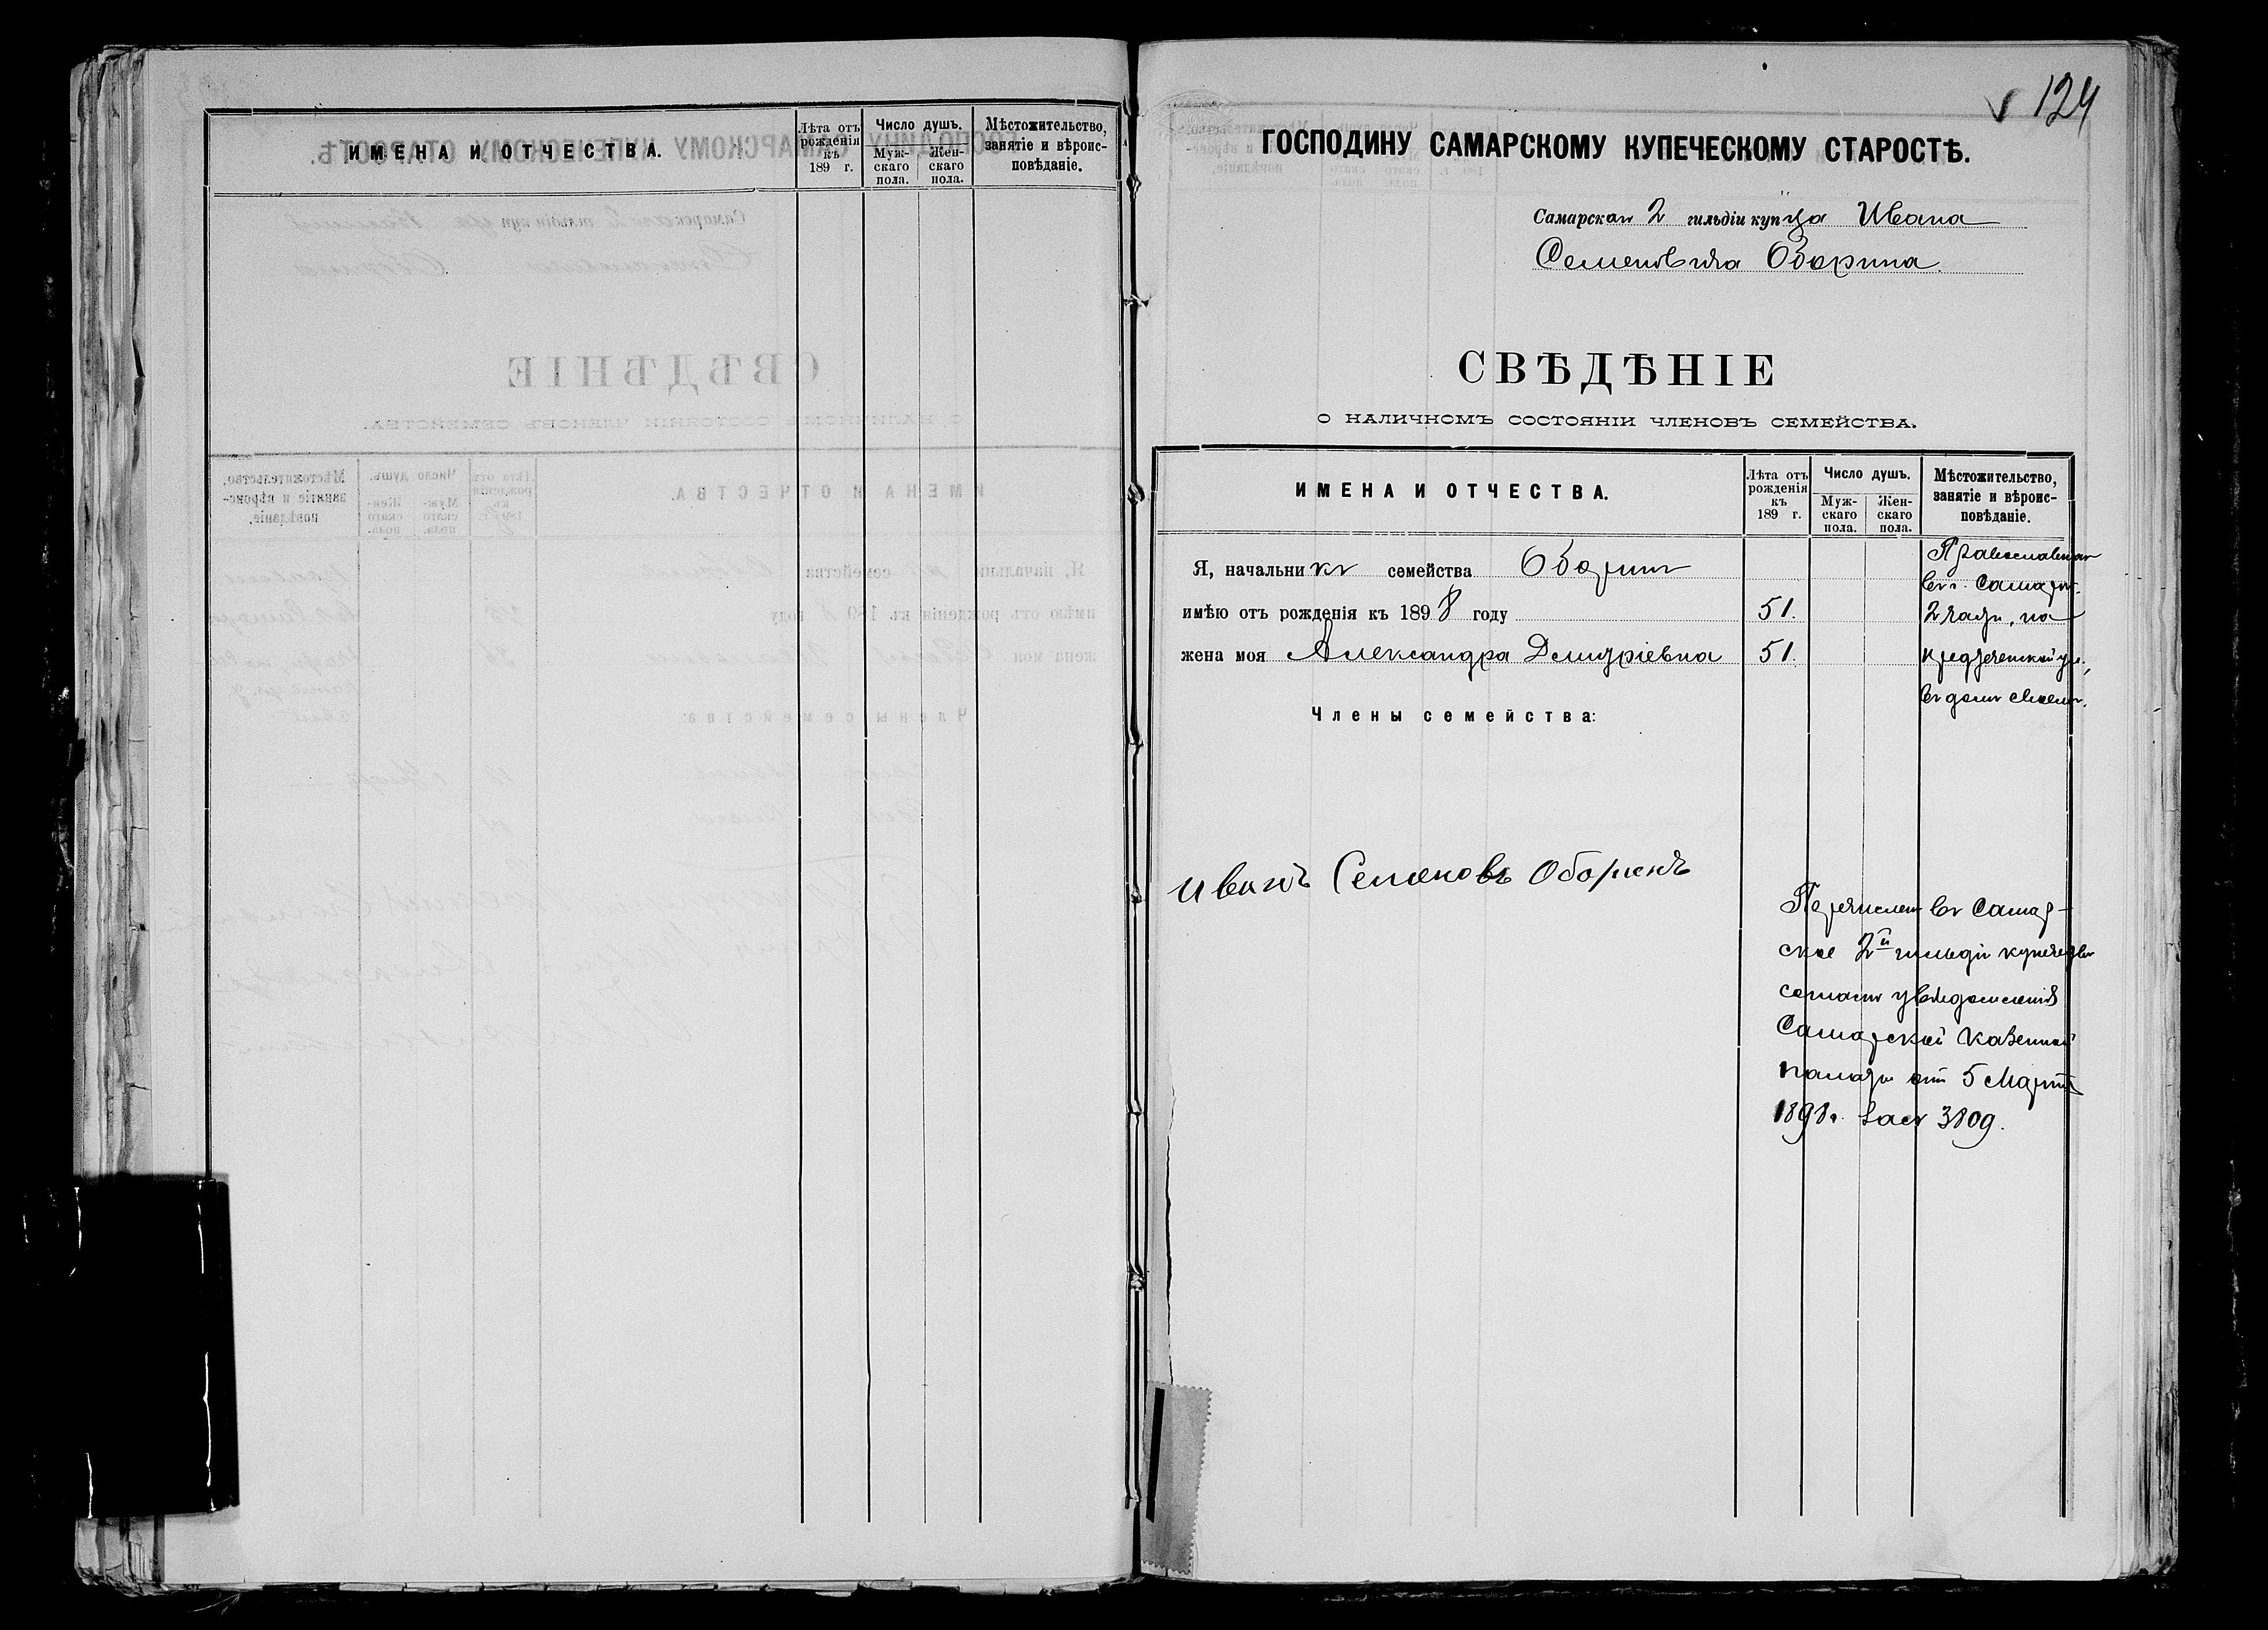 ИМЕНА И ОТЧЕСТВА.
Лѣта отъ рожденія къ 189 г.
Число душъ.
Мужскаго пола.
Женскаго пола.
Мѣстожительство, занятіе и вѣроисповѣданіе.
124
ГОСПОДИНУ САМАРСКОМУ КУПЕЧЕСКОМУ СТАРОСТѢ.
Самарскаго 2 гильдіи купца Ивана
Семеновича Оборина.
СВѢДѢНІЕ
О НАЛИЧНОМЪ СОСТОЯНІИ ЧЛЕНОВЪ СЕМЕЙСТВА.
ИМЕНА И ОТЧЕСТВА.
Лѣта отъ рожденія къ 189 г.
Число душъ.
Муж-скаго пола.
Жен-скаго пола.
Мѣстожительство, занятіе и вѣроис-повѣданіе.
Я, начальникъ семейства Оборинъ
имѣю отъ рожденія къ 1898 году 51.
жена моя Александра Демитріевна 51.
Православнаго
въ г. Самарѣ.
2 части, на
предтеченской ул.,
въ домѣ своемъ.
Члены семейства:
Иванъ Семеновъ Оборинъ
Перечисленъ въ Самар-
ское 2й гильдіи купечество
согласно увѣдомленія
Самарской Казенной
палаты отъ 5 Марта
1898г. за № 3809.